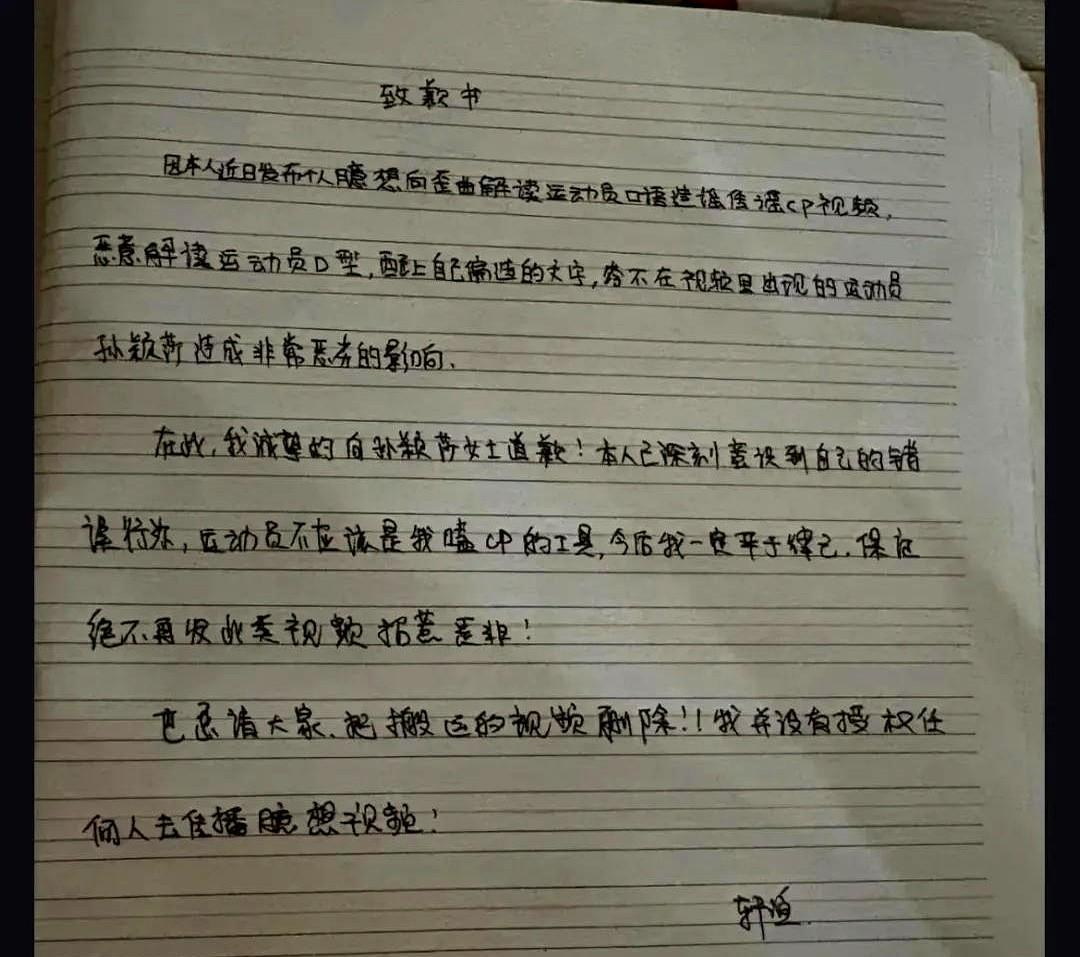 致歉书
因本人近日发布个人臆想向歪曲解读运动员口语造谣传谣CP视频,
恶意解读运动员口型,配上自己编造的文字,容不在视频里出现的运动员
孙颖莎造成非常恶劣的影响.
在此,我诚挚的向孙颖莎女士道歉!本人已深刻意识到自己的错
误行为,运动员不应该是我嗑CP的工具,今后我一定严于律己.保证
绝不再发此类视频招惹是非!
也恳请大家.把搬运的视频删除!!我并没有授权任
何人去传播臆想视频!